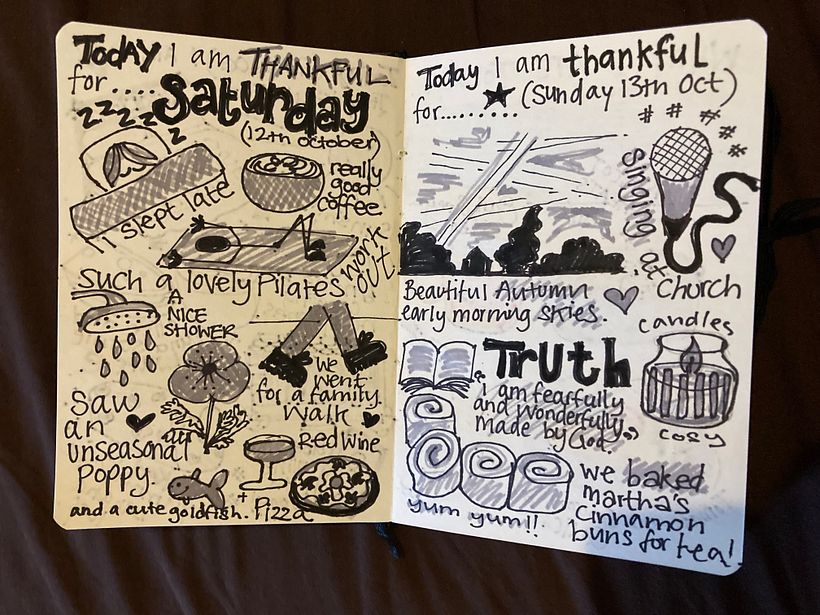 Today I am THANKFUL
for ....Saturday
(12th october)
zzzzz
I slept late
really
good
coffee
Such a lovely Pilates work
out
A
NICE
SHOWER
we
went
for a family
walk
Saw
an
unseasonal
Poppy.
and a cute goldfish.
Red wine
+
Pizza
Today I am thankful
for......... (Sunday 13th Oct)
Singing at
Church
Beautiful Autumn
early morning skies.
candles
cosy
Truth
"I am fearfully
and wonderfully
made by God."
we baked
martha's
cinnamon
buns for tea!
yum yum!!